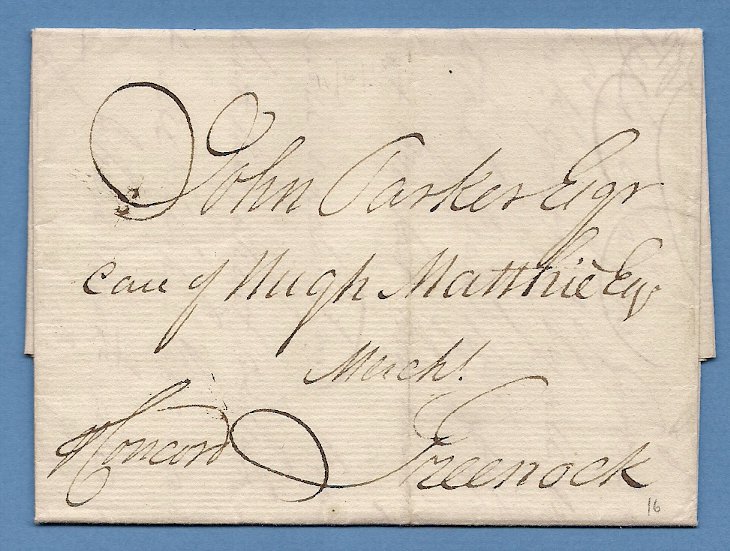 John Parker Esqr
care of Hugh Matthie Esqr
Mercht.
Concord Greenock
16